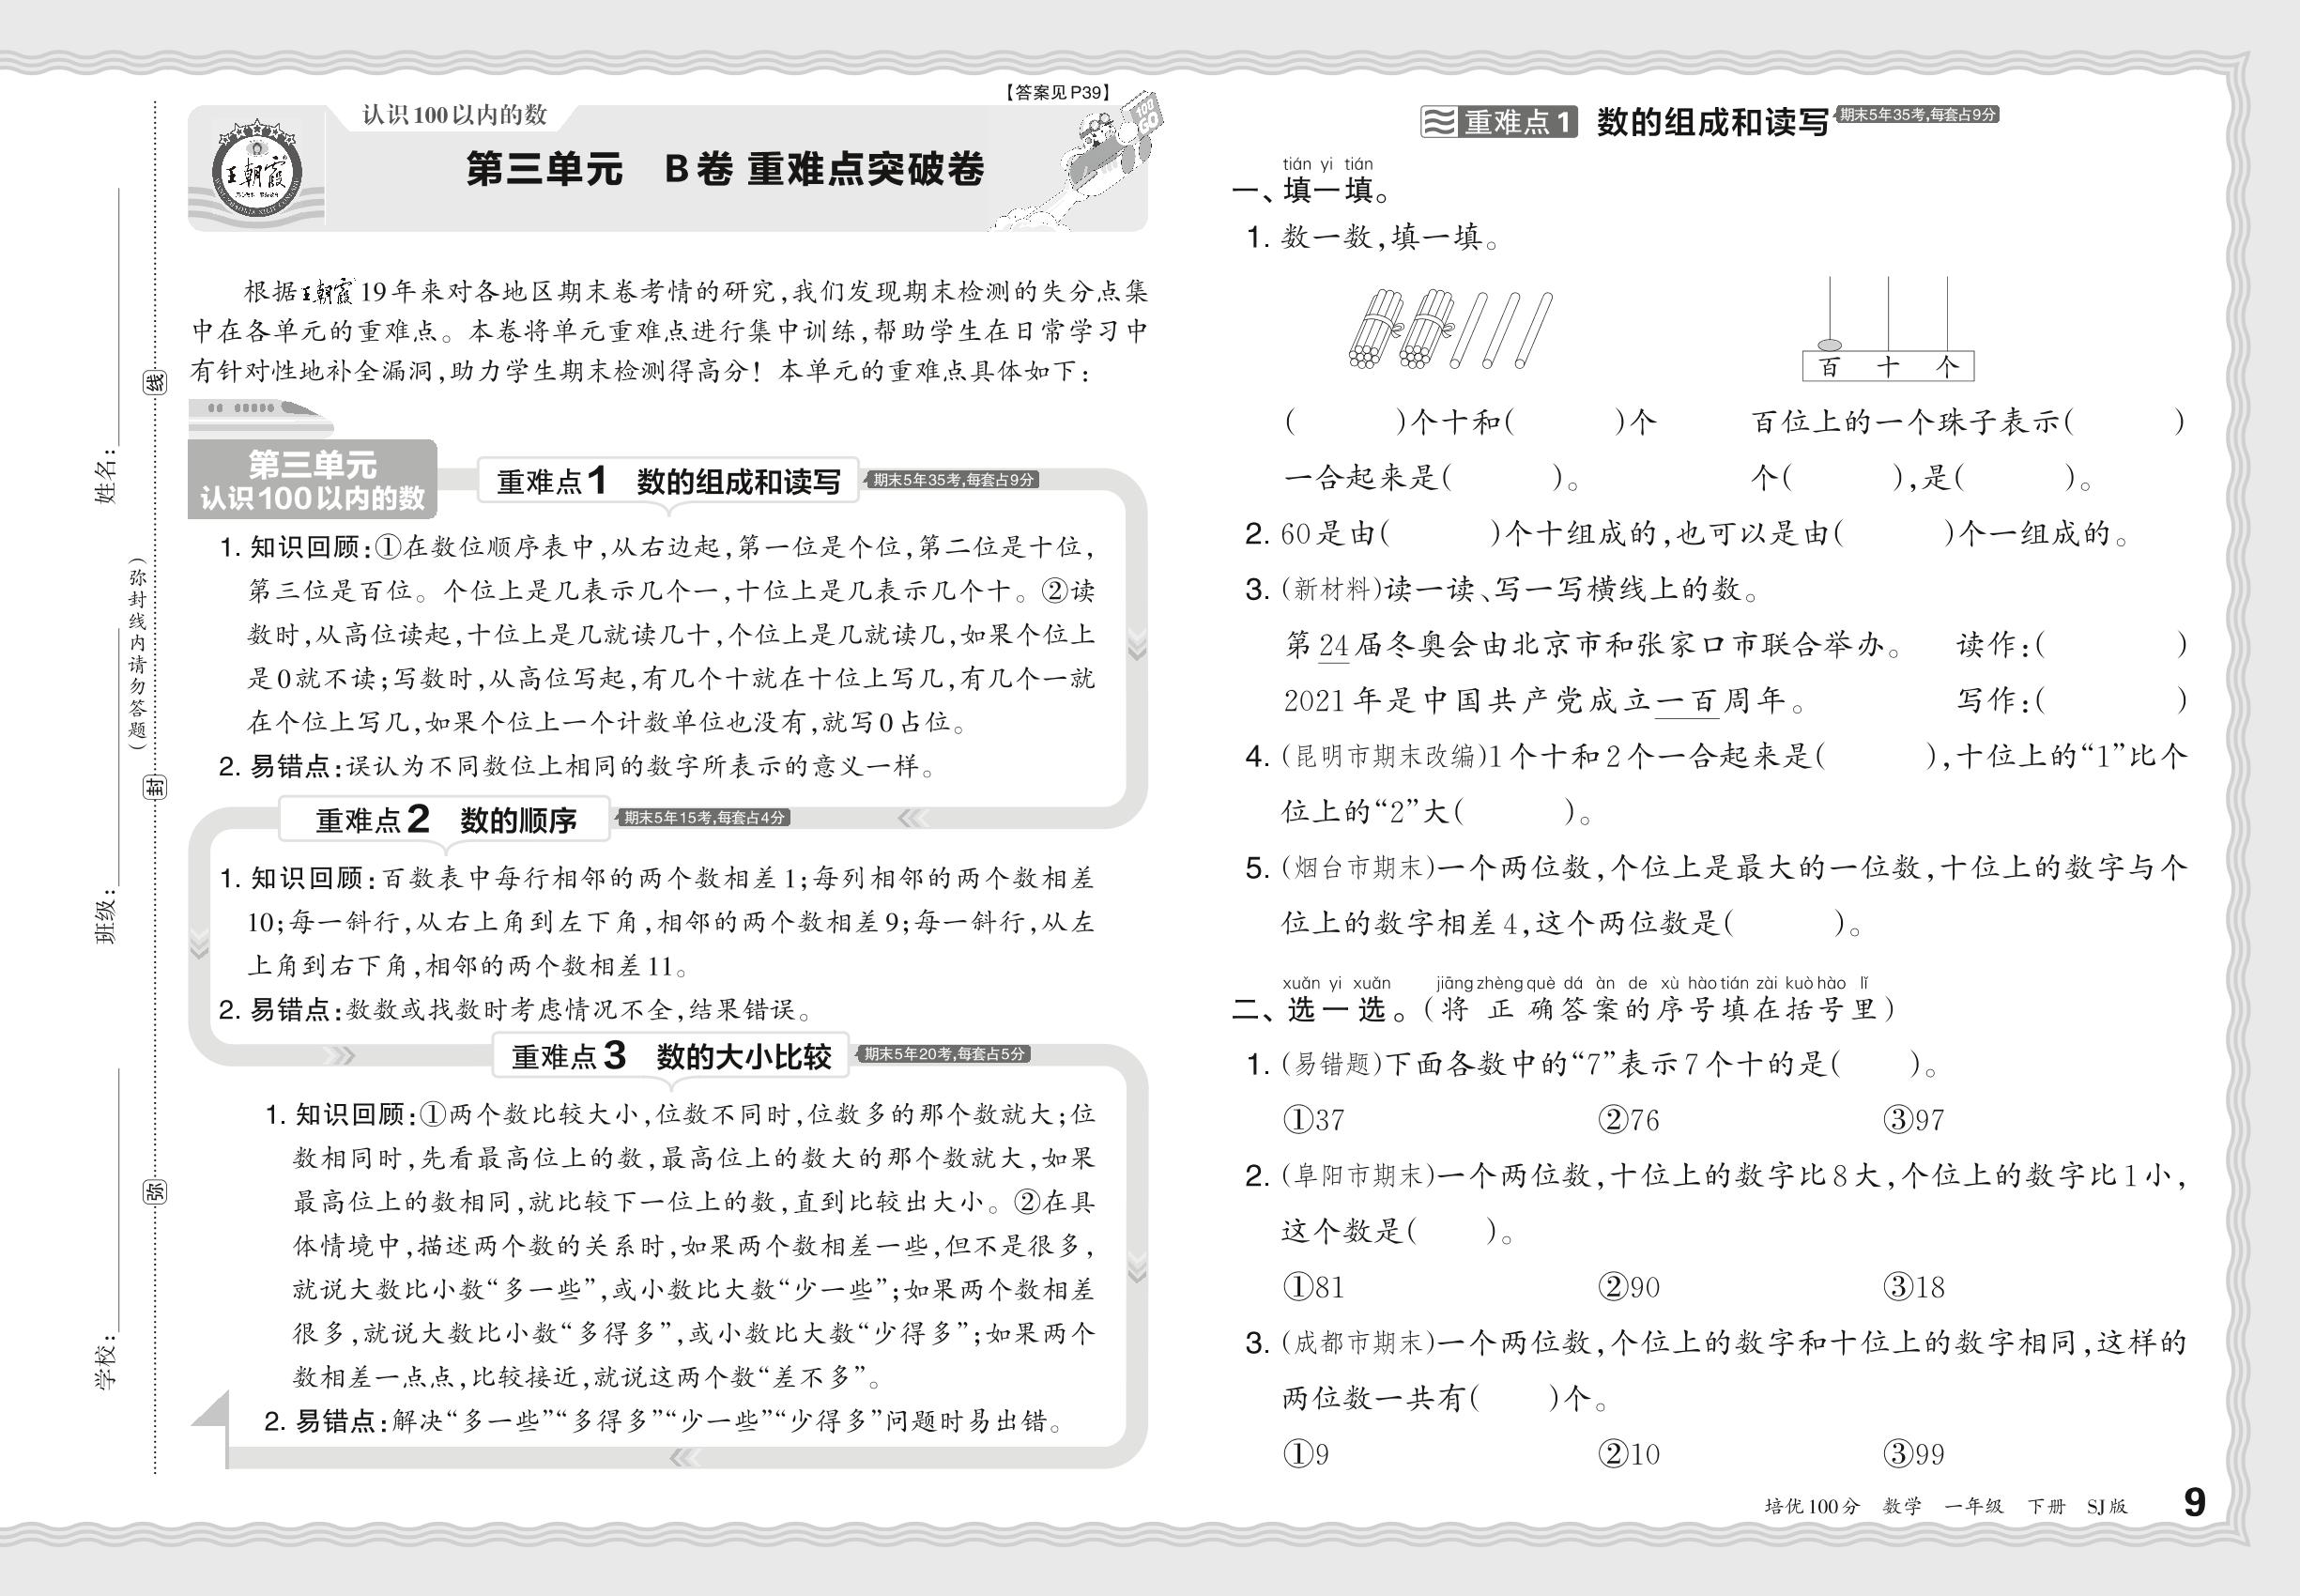 【答案见P39】
认识100以内的数
王朝霞
第三单元 B卷 重难点突破卷
根据王朝霞19年来对各地区期末卷考情的研究,我们发现期末检测的失分点集
中在各单元的重难点。本卷将单元重难点进行集中训练,帮助学生在日常学习中
有针对性地补全漏洞,助力学生期末检测得高分!本单元的重难点具体如下:
第三单元
认识100以内的数
重难点1 数的组成和读写 期末5年35考,每套占9分
1. 知识回顾:①在数位顺序表中,从右边起,第一位是个位,第二位是十位,
第三位是百位。个位上是几表示几个一,十位上是几表示几个十。②读
数时,从高位读起,十位上是几就读几十,个位上是几就读几,如果个位上
是0就不读;写数时,从高位写起,有几个十就在十位上写几,有几个一就
在个位上写几,如果个位上一个计数单位也没有,就写0占位。
2. 易错点:误认为不同数位上相同的数字所表示的意义一样。
重难点2 数的顺序 期末5年15考,每套占4分
1. 知识回顾:百数表中每行相邻的两个数相差1;每列相邻的两个数相差
10;每一斜行,从右上角到左下角,相邻的两个数相差9;每一斜行,从左
上角到右下角,相邻的两个数相差11。
2. 易错点:数数或找数时考虑情况不全,结果错误。
重难点3 数的大小比较 期末5年20考,每套占5分
1. 知识回顾:①两个数比较大小,位数不同时,位数多的那个数就大;位
数相同时,先看最高位上的数,最高位上的数大的那个数就大,如果
最高位上的数相同,就比较下一位上的数,直到比较出大小。②在具
体情境中,描述两个数的关系时,如果两个数相差一些,但不是很多,
就说大数比小数“多一些”,或小数比大数“少一些”;如果两个数相差
很多,就说大数比小数“多得多”,或小数比大数“少得多”;如果两个
数相差一点点,比较接近,就说这两个数“差不多”。
2. 易错点:解决“多一些”“多得多”“少一些”“少得多”问题时易出错。
姓名:
班级:
学校:
(弥封线内请勿答题)
线
封
弥
重难点1 数的组成和读写 期末5年35考,每套占9分
tián yi tián
一、填一填。
1. 数一数,填一填。
百 十 个
( )个十和( )个 百位上的一个珠子表示( )
一合起来是( )。 个( ),是( )。
2. 60是由( )个十组成的,也可以是由( )个一组成的。
3. (新材料)读一读、写一写横线上的数。
第24届冬奥会由北京市和张家口市联合举办。 读作:( )
2021年是中国共产党成立一百周年。 写作:( )
4. (昆明市期末改编)1个十和2个一合起来是( ),十位上的“1”比个
位上的“2”大( )。
5. (烟台市期末)一个两位数,个位上是最大的一位数,十位上的数字与个
位上的数字相差4,这个两位数是( )。
xuǎn yi xuǎn jiāng zhèng què dá àn de xù hào tián zài kuò hào lǐ
二、选一选。(将正确答案的序号填在括号里)
1. (易错题)下面各数中的“7”表示7个十的是( )。
①37 ②76 ③97
2. (阜阳市期末)一个两位数,十位上的数字比8大,个位上的数字比1小,
这个数是( )。
①81 ②90 ③18
3. (成都市期末)一个两位数,个位上的数字和十位上的数字相同,这样的
两位数一共有( )个。
①9 ②10 ③99
培优100分 数学 一年级 下册 SJ版 9